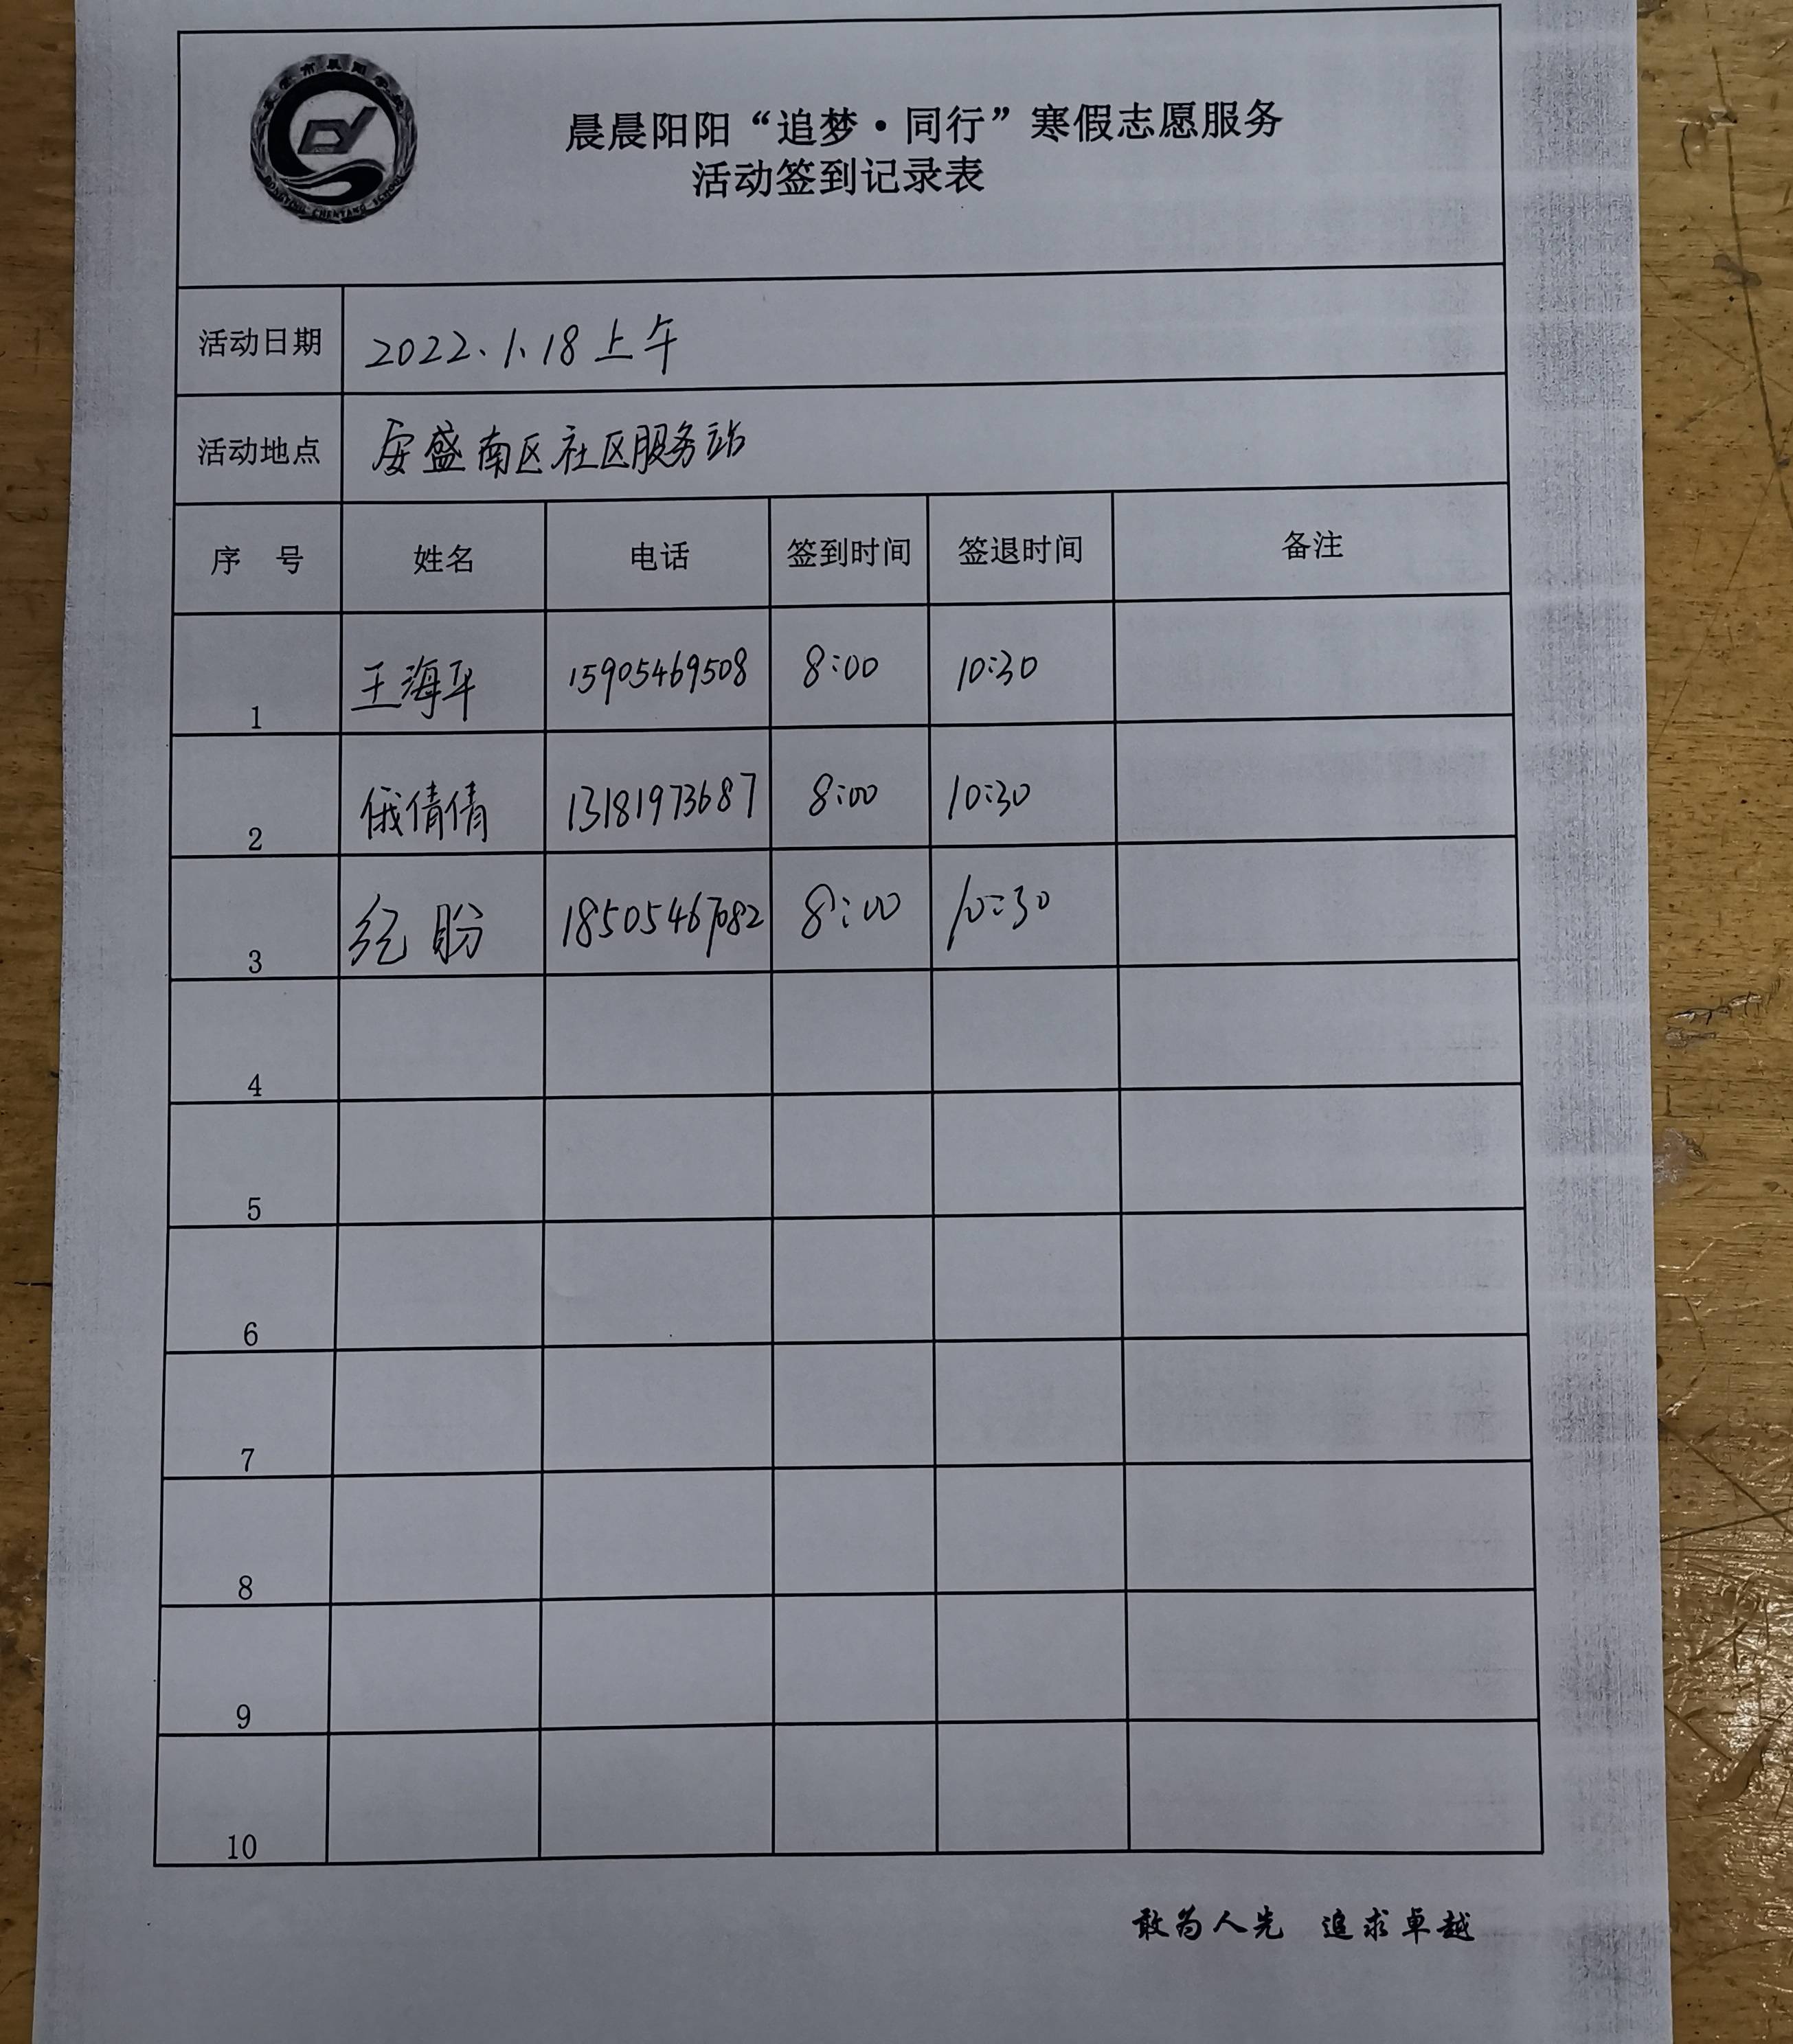 晨晨阳阳“追梦·同行”寒假志愿服务
活动签到记录表
活动日期 2022.1.18上午
活动地点 安盛南区社区服务站
序 号 姓名 电话 签到时间 签退时间 备注
1 王海平 15905469508 8:00 10:30
2 俄倩倩 13181973687 8:00 10:30
3 纪盼 18505467082 8:00 10:30
4
5
6
7
8
9
10
敢为人先 追求卓越